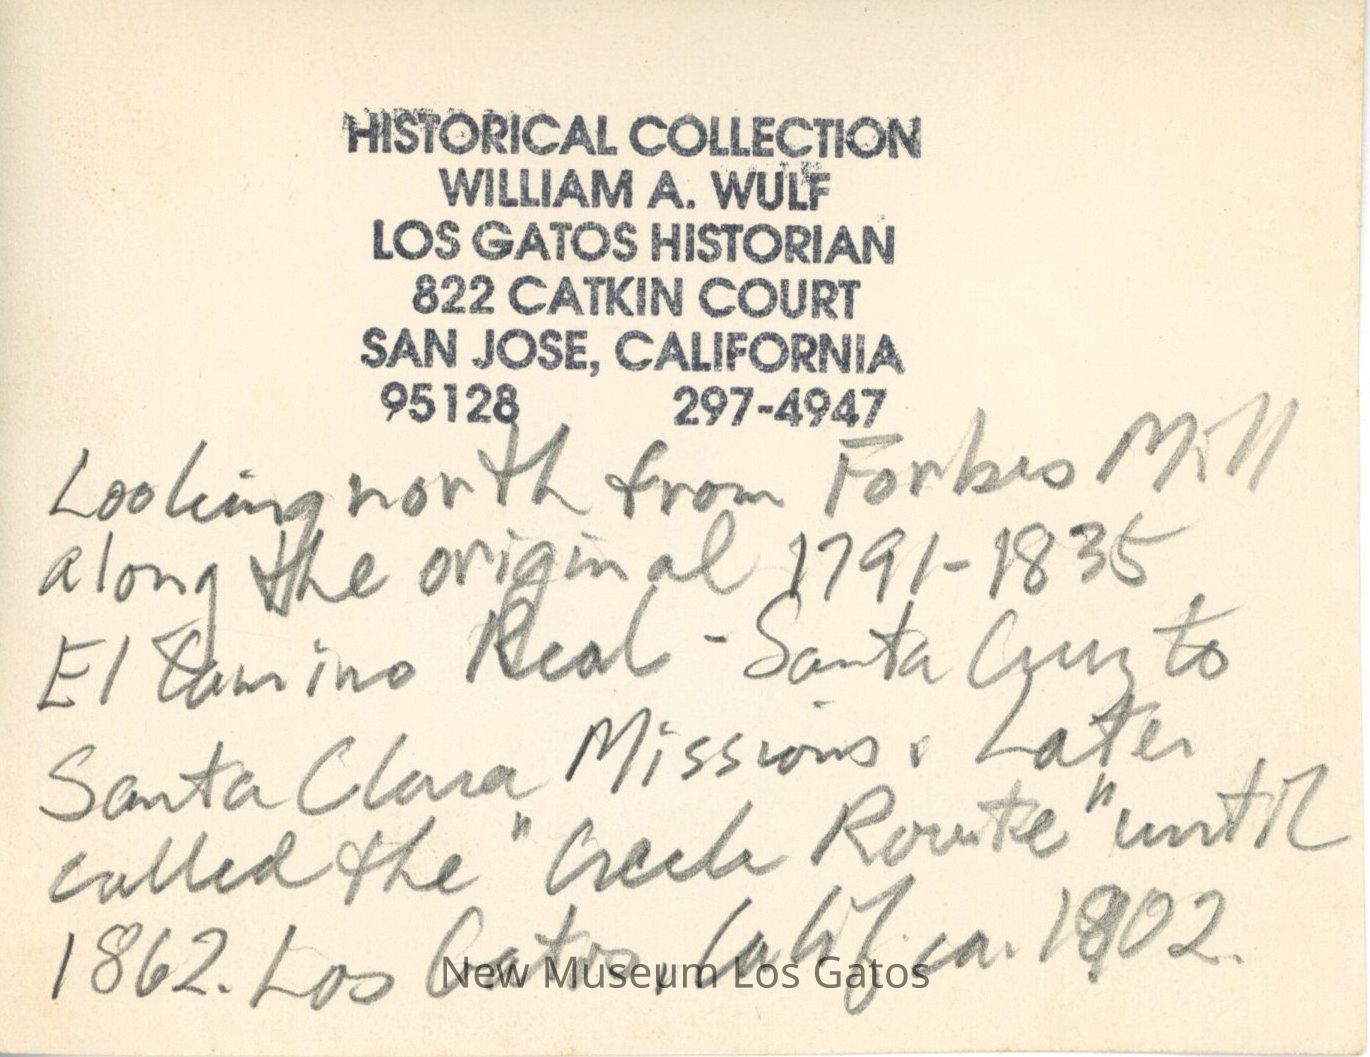 HISTORICAL COLLECTION
WILLIAM A. WULF
LOS GATOS HISTORIAN
822 CATKIN COURT
SAN JOSE, CALIFORNIA
95128 297-4947
Looking north from Forbes Mill
along the original 1791-1835
El Camino Real - Santa Cruz to
Santa Clara Missions. Later
called the "Creek Route" until
1862. Los Gatos, Calif. ca. 1902.
New Museum Los Gatos